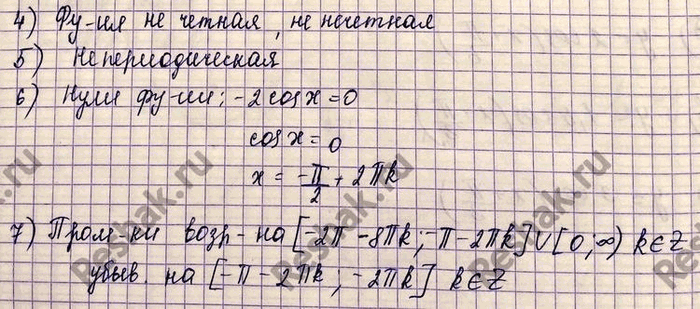 4) Фу-ия не четная, не нечетная
5) Непериодическая
6) Нули фу-ии: -2cosx=0
cosx=0
x = -π/2 + 2πk
7) Пром-ки возр-на [-2π-8πk; -π-2πk]∪[0;∞) k∈Z
убыв. на [-π-2πk; -2πk] k∈Z
Reshak.ru
Reshak.ru
Reshak.ru